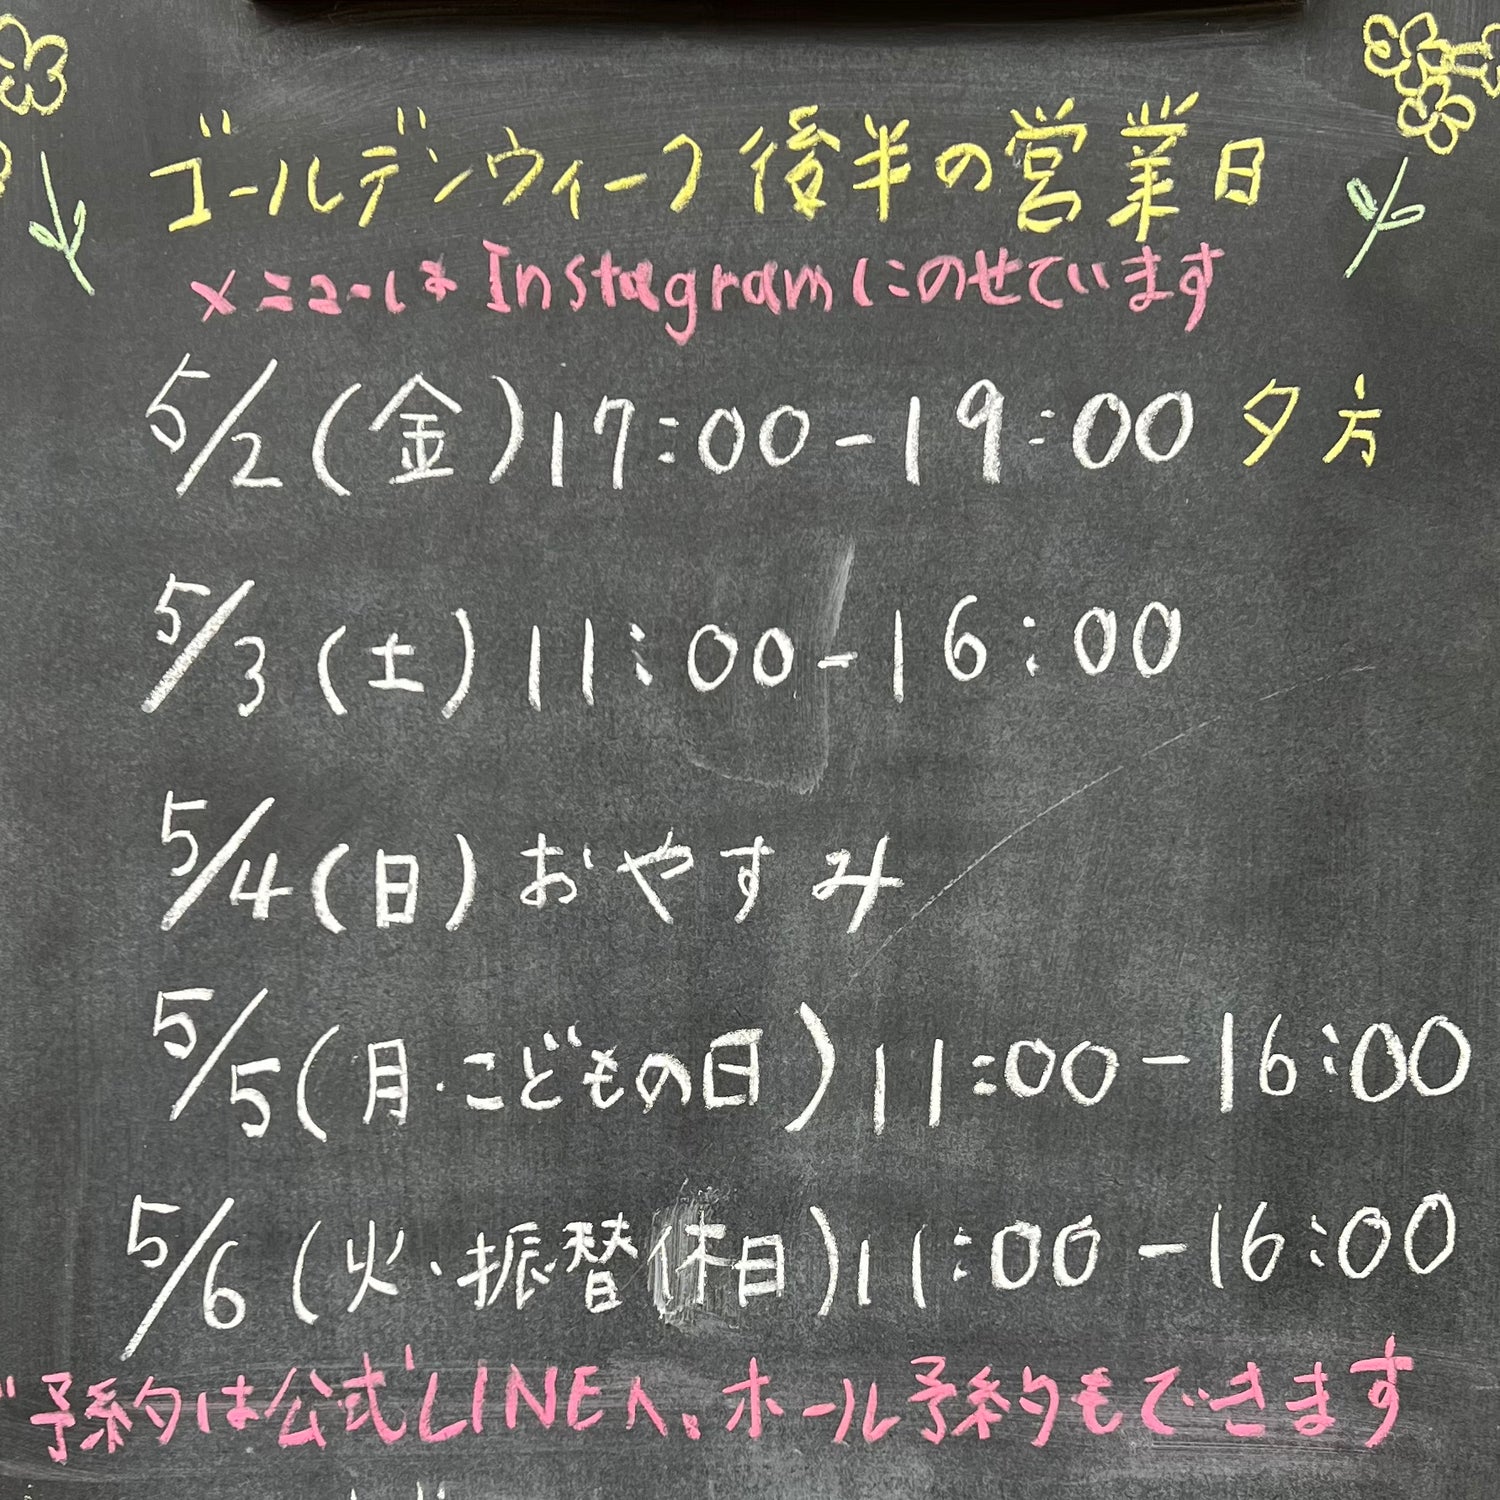 ゴールデンウィーク後半の営業日
メニューは Instagramにのせています
5/2(金)17:00-19:00 夕方
5/3(土)11:00-16:00
5/4(日)おやすみ
5/5(月・こどもの日)11:00-16:00
5/6(火・振替休日)11:00-16:00
予約は公式LINEへ、ホール予約もできます